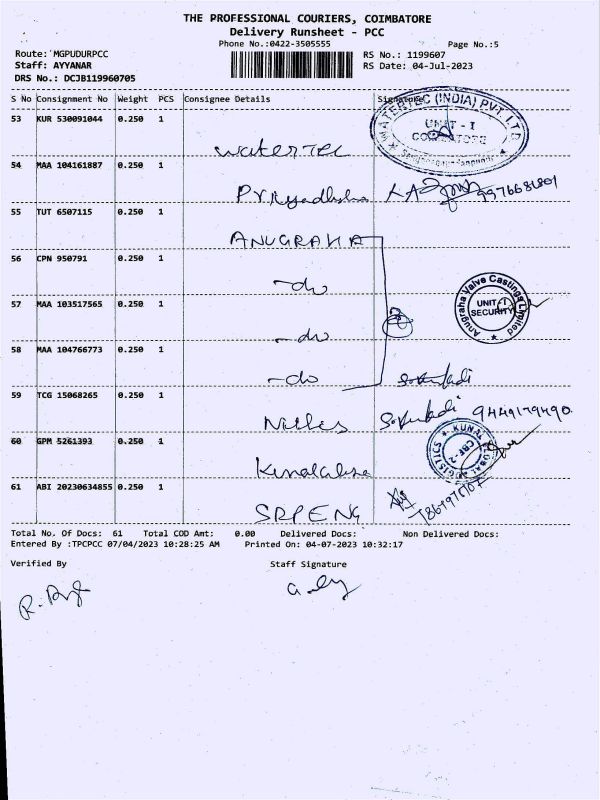 THE PROFESSIONAL COURIERS, COIMBATORE
Delivery Runsheet - PCC
Phone No.:0422-3505555
Page No.:5
Route: MGPUDURPCC
RS No.: 1199607
Staff: AYYANAR
RS Date: 04-Jul-2023
DRS No.: DCJB119960705
S No Consignment No Weight PCS Consignee Details Signature
53 KUR 530091044 0.250 1
WATERTEC (INDIA) PVT. LTD
UNIT - I
COIMBATORE
watertec
54 MAA 104161887 0.250 1
55 TUT 6507115 0.250 1
ANUGRAHA
56 CPN 950791 0.250 1
- do
Anugraha Valve Castings Limited
UNIT-I
SECURITY
57 MAA 103517565 0.250 1
- do
58 MAA 104766773 0.250 1
- do
59 TCG 15068265 0.250 1
9449179490
60 GPM 5261393 0.250 1
KUNAL GLOBAL LOGISTICS
CBF-2
61 ABI 20230634855 0.250 1
SRPENG
Total No. Of Docs: 61 Total COD Amt: 0.00 Delivered Docs: Non Delivered Docs:
Entered By :TPCPCC 07/04/2023 10:28:25 AM Printed On: 04-07-2023 10:32:17
Verified By Staff Signature